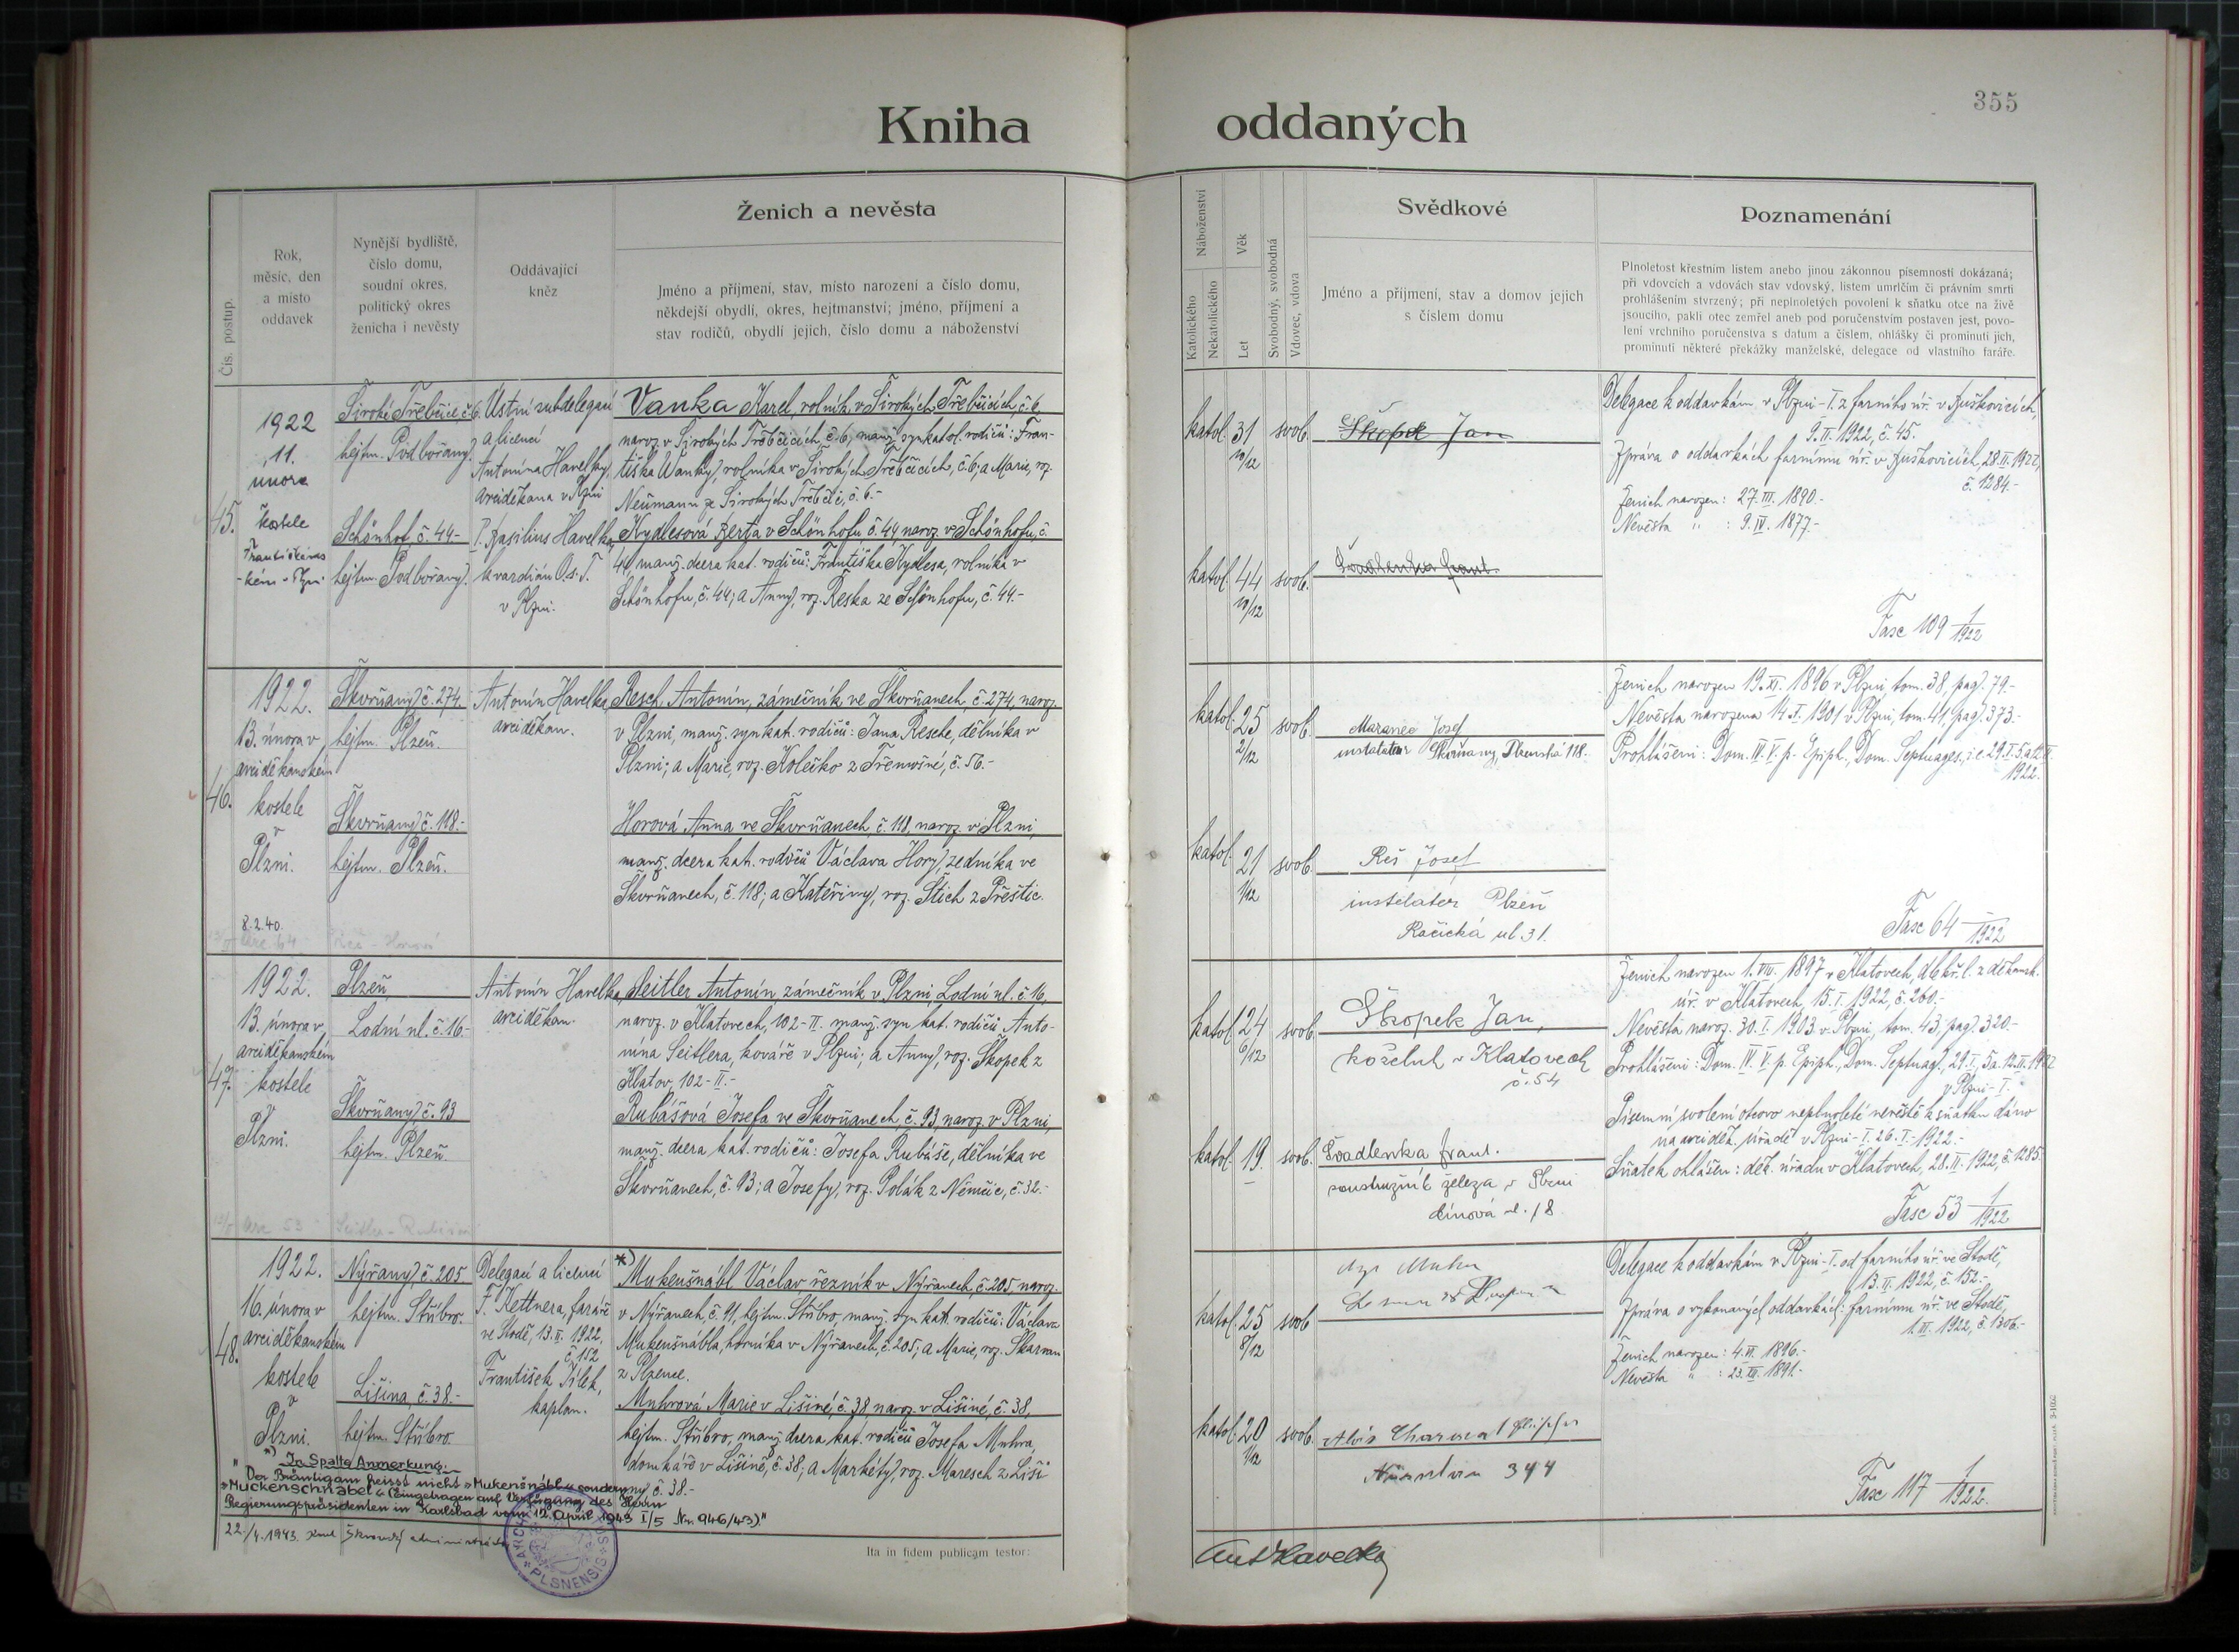 355
Kniha oddaných
Čís. postup.
Rok,
měsíc, den
a místo
oddavek
Nynější bydliště,
číslo domu,
soudní okres,
politický okres
ženicha i nevěsty
Oddávající
kněz
Ženich a nevěsta
Jméno a příjmení, stav, místo narození a číslo domu,
někdejší obydlí, okres, hejtmanství; jméno, příjmení a
stav rodičů, obydlí jejich, číslo domu a náboženství
Náboženství
Katolického
Nekatolického
Věk
Let
Svobodný, svobodná
Vdovec, vdova
Svědkové
Jméno a příjmení, stav a domov jejich
s číslem domu
Poznamenání
Plnoletost křestním listem anebo jinou zákonnou písemností dokázaná;
při vdovcích a vdovách stav vdovský, listem umrlčím či právním smrti
prohlášením stvrzený; při neplnoletých povolení k sňatku otce na živě
jsoucího, pakli otec zemřel aneb pod poručenstvím postaven jest, povo-
lení vrchního poručenstva s datum a číslem, ohlášky či prominutí jich,
prominutí některé překážky manželské, delegace od vlastního faráře.
45.
1922
11.
února
kostele
Františkáns
-kém v Plzni
Široké Třebčice, č. 6.
hejtm. Podbořany.
Schönhof, č. 44-
hejtm. Podbořany.
Ústní subdelegací
a licencí
Antonína Havelky,
arciděkana v Plzni
P. Basilius Havelka,
kvardián O.s.F.
v Plzni.
Vanka Karel, rolník v Širokých Třebčicích, č. 6,
naroz. v Širokých Třebčicích, č. 6, manž. syn katol. rodičů: Fran-
tiška Wanky, rolníka v Širokých Třebčicích, č. 6; a Marie, roz.
Neumann ze Širokých Třebčic, č. 6.-
Kydlesová Berta v Schönhofu, č. 44, naroz. v Schönhofu, č.
44, manž. dcera kat. rodičů: Františka Kydlesa, rolníka v
Schönhofu, č. 44; a Anny, roz. Reska ze Schönhofu, č. 44.-
katol. 31 10/12 svob.
Škopek Jan
katol. 44 10/12 svob.
Švadlenka frant.
Delegace k oddavkám v Plzni-I. z farního úř. v Buškovicích,
9.II.1922, č. 45.
Zpráva o oddavkách farnímu úř. v Buškovicích, 28.II.1922,
č. 1284.-
Ženich narozen: 27.III.1890.-
Nevěsta " : 9.IV.1877.-
Fasc 109 1/1922
46.
1922.
13. února v
arciděkanském
kostele
v
Plzni.
8.2.40.
Škvrňany, č. 274.
hejtm. Plzeň.
Škvrňany, č. 118.-
hejtm. Plzeň.
Antonín Havelka,
arciděkan.
Resch Antonín, zámečník ve Škvrňanech, č. 274, naroz.
v Plzni, manž. syn kat. rodičů: Jana Resche, dělníka v
Plzni; a Marie, roz. Kolečko z Třemošné, č. 56.-
Horová Anna ve Škvrňanech, č. 118, naroz. v Plzni,
manž. dcera kat. rodičů Václava Hory, zedníka ve
Škvrňanech, č. 118; a Kateřiny, roz. Štich z Přeštic.
katol. 25 2/12 svob.
Maranec Josef
instalater Škvrňany, Plzenská 118.
katol. 21 1/12 svob.
Reš Josef
instelater Plzeň
Račická ul. 31.
Ženich narozen 19.XI.1896 v Plzni, tom. 38, pag. 79.-
Nevěsta narozena 14.I.1901 v Plzni, tom. 41, pag. 373.-
Prohlášeni: Dom. IV. V. p. Epiph., Dom. Septuages., i. e. 29.I. 5. a 12.II.
1922.
Fasc 64 -/1922
47.
1922.
13. února v
arciděkanském
kostele
v
Plzni.
Plzeň,
Lodní ul. č. 16-
Škvrňany, č. 93
hejtm. Plzeň.
Antonín Havelka,
arciděkan.
Seitler Antonín, zámečník v Plzni, Lodní ul. č. 16,
naroz. v Klatovech, 102-II. manž. syn kat. rodičů Anto-
nína Seitlera, kováře v Plzni; a Anny, roz. Škopek z
Klatov, 102-II.-
Rubášová Josefa ve Škvrňanech, č. 93, naroz. v Plzni,
manž. dcera kat. rodičů: Josefa Rubáše, dělníka ve
Škvrňanech, č. 93; a Josefy, roz. Polák z Němčic, č. 32.-
katol. 24 6/12 svob.
Škopek Jan,
koželuh v Klatovech
č. 54
katol. 19. svob.
Švadlenka frant.
soustružník železa v Plzni
18.
Ženich narozen 1.VIII.1897 v Klatovech, dle kř. l. z děkansk.
úř. v Klatovech, 15.I.1922, č. 260.-
Nevěsta naroz. 30.I.1903 v Plzni, tom. 43, pag. 320.-
Prohlášeni: Dom. IV. V. p. Epiph., Dom. Septuag., 29.I., 5. a 12.II.1922
v Plzni-I.
Písemní svolení otcovo neplnoleté nevěstě k sňatku dáno
na arciděk. úřadě v Plzni-I. 26.I.1922.-
Sňatek ohlášen: děk. úřadu v Klatovech, 28.II.1922, č. 1285.
Fasc 53 1/1922
48.
1922.
16. února v
arciděkanském
kostele
v
Plzni.
Nýřany, č. 205
hejtm. Stříbro.
Lišina, č. 38.-
hejtm. Stříbro.
Delegací a licencí
F. Kettnera, faráře
ve Stodě, 13.II.1922,
č. 152
František Sílek,
kaplan.
*) Mukenšnábl Václav řezník v Nýřanech, č. 205, naroz.
v Nýřanech, č. 91, hejtm. Stříbro, manž. syn kat. rodičů: Václava
Mukenšnábla, horníka v Nýřanech, č. 205; a Marie, roz. Skarvan
z Plzence.
Muhrová Marie v Lišině, č. 38, naroz. v Lišině, č. 38,
hejtm. Stříbro, manž. dcera kat. rodičů Josefa Muhra,
domkáře v Lišině, č. 38; a Markéty, roz. Maresch z Liši-
ny, č. 38.-
katol. 25 8/12 svob.
katol. 20 1/12 svob.
344
Delegace k oddavkám v Plzni-I. od farního úř. ve Stodě,
13.II.1922, č. 152.-
Zpráva o vykonaných oddavkách: farnímu úř. ve Stodě,
1.III.1922, č. 1306.-
Ženich narozen: 4.VI.1896.-
Nevěsta " : 23.XII.1891.-
Fasc 117 1/1922.
*) In Spalte Anmerkung:
"Der Bräutigam heisst nicht »Mukenšnábl« sondern
»Muckenschnabel« (Eingetragen auf Verfügung des Herrn
Regierungspräsidenten in Karlsbad vom 12. April 1943 I/5 Nr. 946/43)."
22./4.1943.
PLSNENSIS
Ita in fidem publicam testor:
Ant Havelka